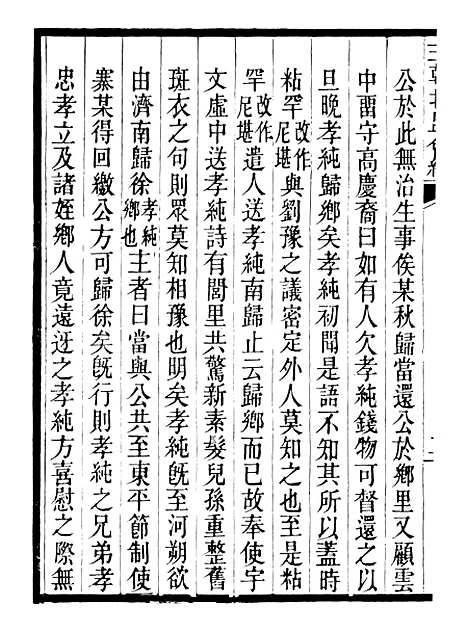 公於此無治生事俟某秋歸當還公於鄉里又顧雲
中畱守高慶裔曰如有人欠孝純錢物可督還之以
旦晚孝純歸鄉矣孝純初聞是語不知其所以葢時
粘罕改作尼堪與劉豫之議密定外人莫知之也至是粘
罕改作尼堪遣人送孝純南歸止云歸鄉而已故奉使宇
文虛中送孝純詩有閭里共驚新素髮兒孫重整舊
斑衣之句則眾莫知相豫也明矣孝純旣至河朔欲
由濟南歸徐孝純鄉也主者曰當與公共至東平節制使
寨某得回繳公方可歸徐矣旣行則孝純之兄弟孝
忠孝立及諸姪鄉人竟遠迓之孝純方喜慰之際無